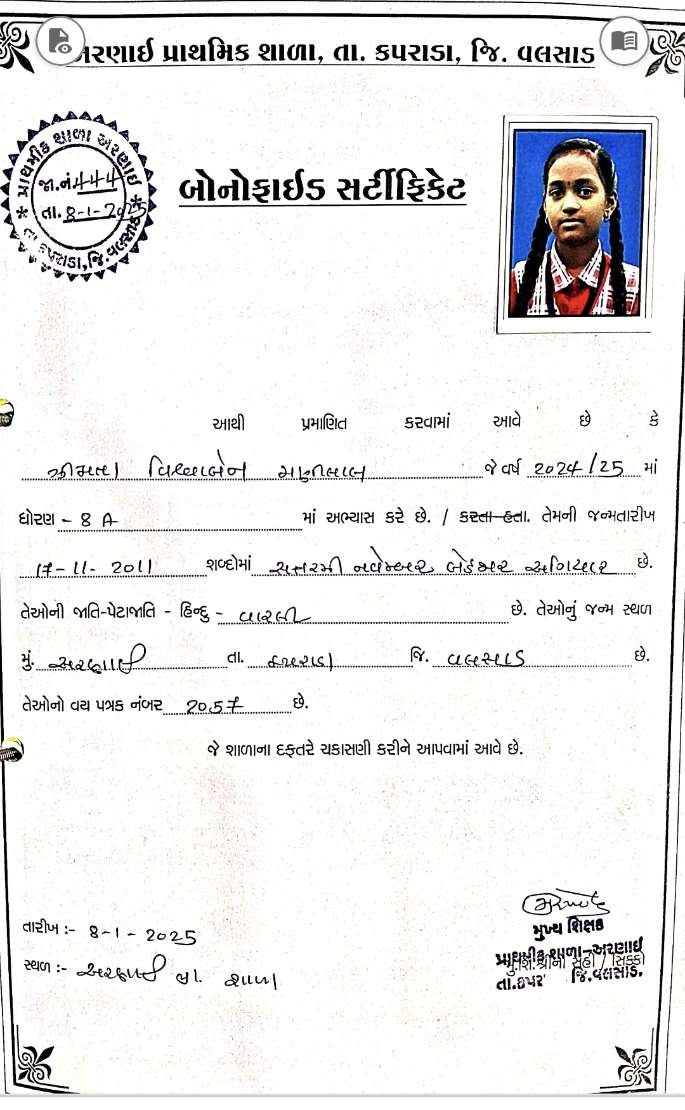 અરણાઈ પ્રાથમિક શાળા, તા. કપરાડા, જિ. વલસાડ
પ્રાથમીક શાળા અરણાઈ
જા.નં. 444
તા. 8-1-2025
તા. કપરાડા, જિ. વલસાડ
બોનોફાઈડ સર્ટીફિકેટ
આથી પ્રમાણિત કરવામાં આવે છે કે
મણીલાલ જે વર્ષ 2024/25 માં
ધોરણ - 8 A માં અભ્યાસ કરે છે. / કરતા હતા. તેમની જન્મતારીખ
17-11-2011 શબ્દોમાં સત્તરમી નવેમ્બર બેહજાર અગિયાર છે.
તેઓની જાતિ-પેટાજાતિ - હિન્દુ - વારલી છે. તેઓનું જન્મ સ્થળ
મું. અરણાઈ તા. કપરાડા જિ. વલસાડ છે.
તેઓનો વય પત્રક નંબર 2057 છે.
જે શાળાના દફતરે ચકાસણી કરીને આપવામાં આવે છે.
તારીખ :- 8-1-2025
સ્થળ :- અરણાઈ પ્રા. શાળા
મુખ્ય શિક્ષક
પ્રાથમીક શાળા-અરણાઈ
મુ.શિ.શ્રીની સહી / સિક્કો
તા.કપર જિ.વલસાડ.